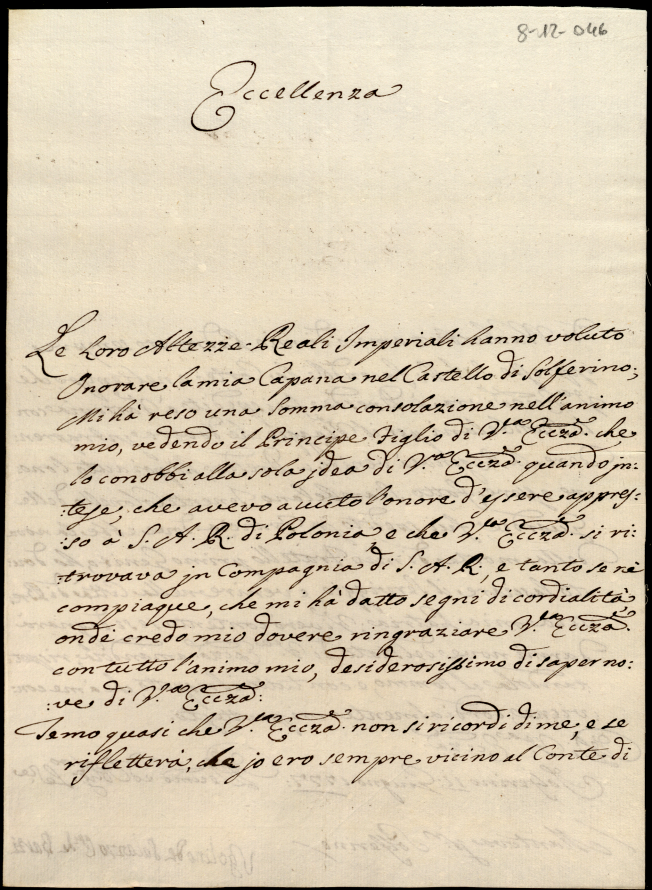 8-12-046
Eccellenza
Le Loro Altezze Reali Imperiali hanno voluto
Onorare la mia Capana nel Castello di Solferino;
Mi hà reso una somma consolazione nell'animo
mio, vedendo il Principe Figlio di V.ra Ecc.za che
lo conobbi alla sola jdea di V.ra Ecc.za quando jn-
:tese, che avevo avuto l'onore d'essere appres-
:so à S. A. R. di Polonia e che V.ra Ecc.za si ri-
:trovava jn Compagnia di S. A. R., e tanto se nè
compiaque, che mi hà datto segni di cordialità,
onde credo mio dovere ringraziare V.ra Ecc.za
con tutto l'animo mio, desiderosissimo di saper no-
:ve di V.ra Ecc.za:
Temo quasi che V.ra Ecc.za non si ricordi di me, e se
rifletterà, che jo ero sempre vicino al Conte di